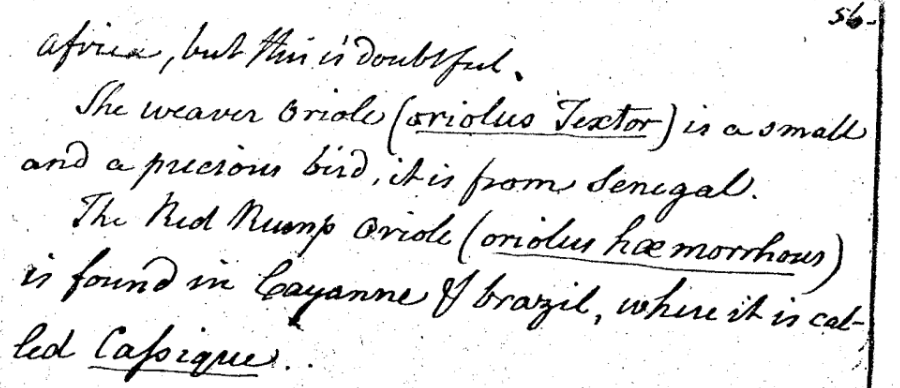 56-
africa, but this is doubtful.
The weaver Oriole (oriolus Textor) is a small
and a precious bird, it is from Senegal.
The Red Rump Oriole (oriolus hæmorrhous)
is found in Cayanne & brazil, where it is cal-
led Caſsique..